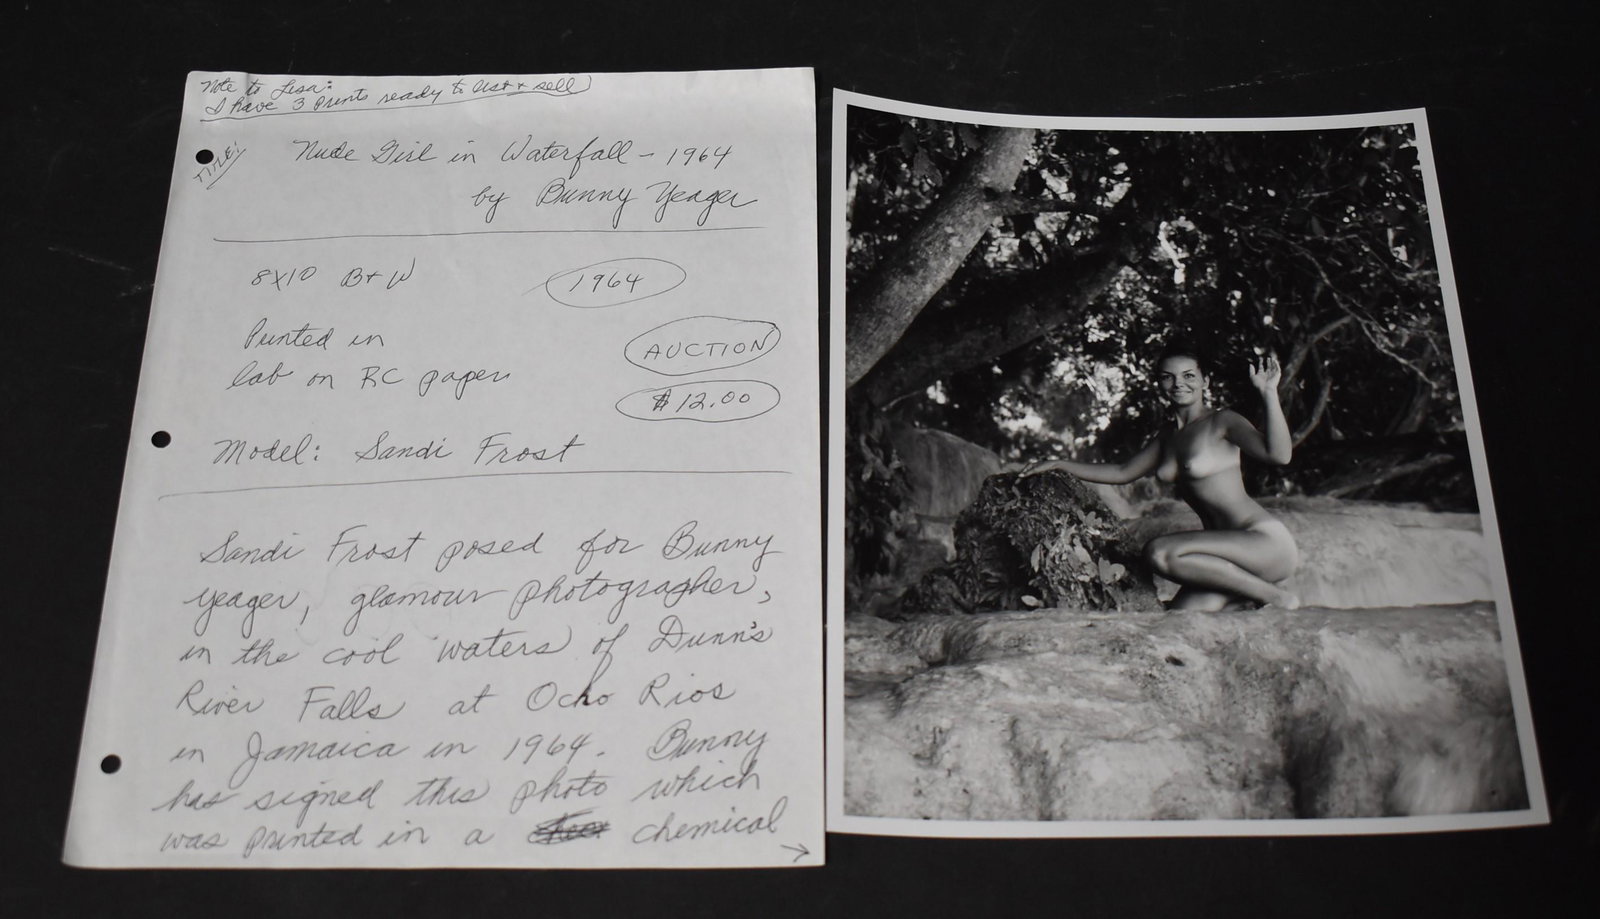 Note to Lisa:
I have 3 prints ready to list + sell
TITLE:
Nude Girl in Waterfall - 1964
by Bunny Yeager
8x10 B+W
1964
Printed in
lab on RC paper
AUCTION
$12.00
Model: Sandi Frost
Sandi Frost posed for Bunny
Yeager, glamour photographer,
in the cool waters of Dunn's
River Falls at Ocho Rios
in Jamaica in 1964. Bunny
has signed this photo which
was printed in a chemical